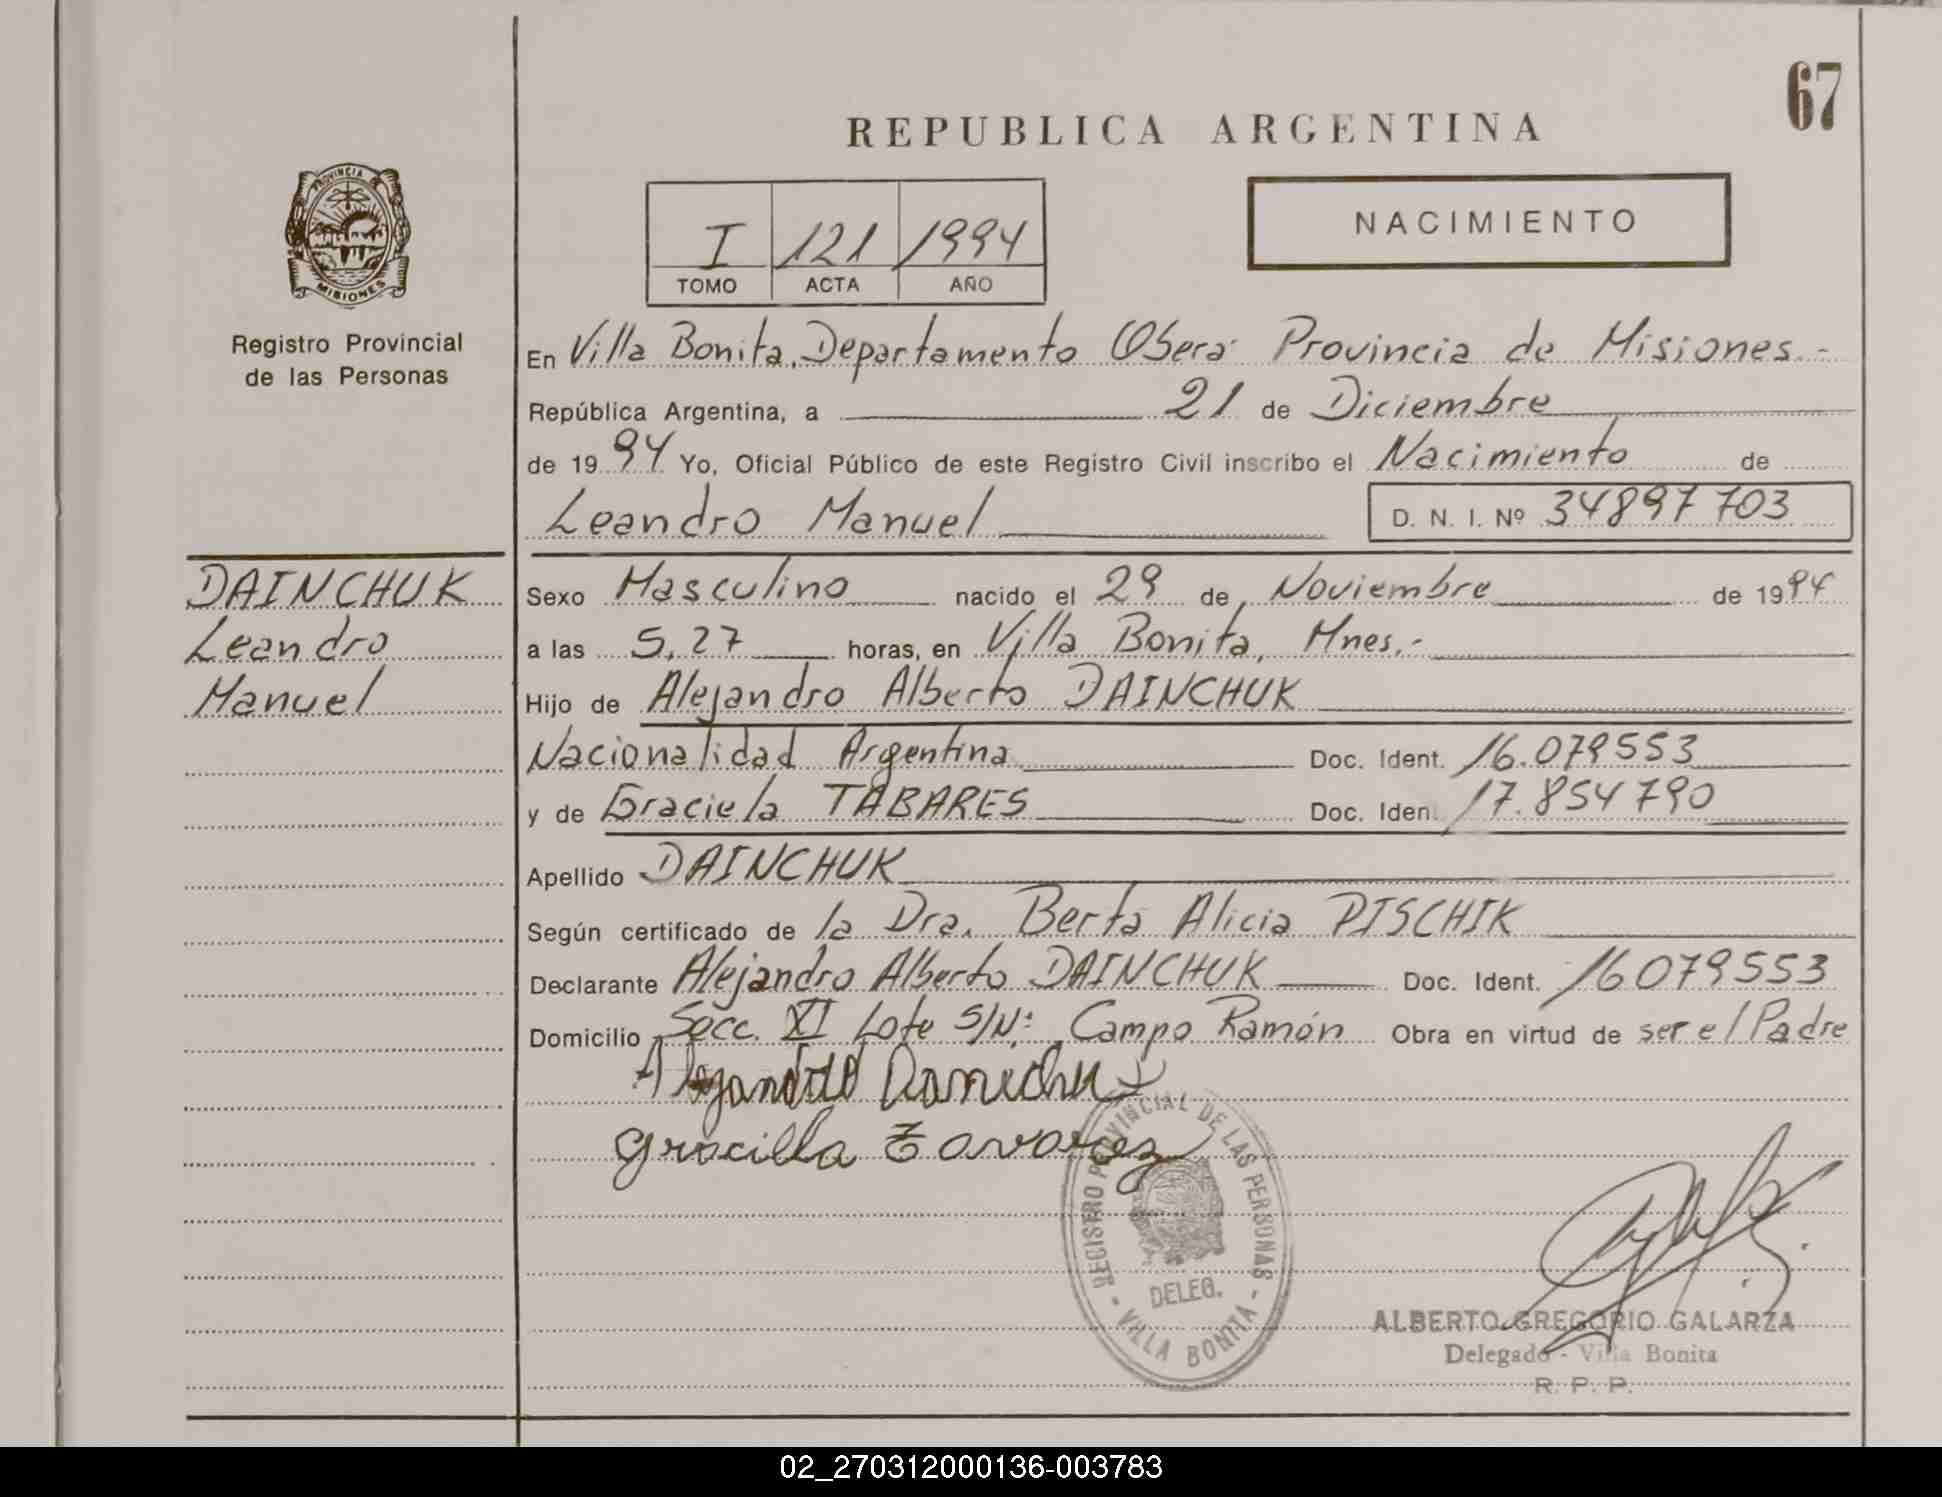 67
REPUBLICA ARGENTINA
PROVINCIA
MISIONES
Registro Provincial
de las Personas
I 121 1994
TOMO ACTA AÑO
NACIMIENTO
En Villa Bonita, Departamento Oberá Provincia de Misiones.-
República Argentina, a 21 de Diciembre
de 1994 Yo, Oficial Público de este Registro Civil inscribo el Nacimiento de
Leandro Manuel D. N. I. Nº 34897703
DAINCHUK
Leandro
Manuel
Sexo Masculino nacido el 29 de Noviembre de 1994
a las 5,27 horas, en Villa Bonita, Mnes.-
Hijo de Alejandro Alberto DAINCHUK
Nacionalidad Argentina Doc. Ident. 16.079553
y de Graciela TABARES Doc. Iden. 17.854790
Apellido DAINCHUK
Según certificado de la Dra. Berta Alicia PISCHIK
Declarante Alejandro Alberto DAINCHUK Doc. Ident. 16079553
Domicilio Secc. XI Lote S/Nº Campo Ramón Obra en virtud de ser el Padre
gracilla Tavarez
REGISTRO PROVINCIAL DE LAS PERSONAS
DELEG.
- VILLA BONITA -
ALBERTO GREGORIO GALARZA
Delegado - Villa Bonita
R. P. P.
02_270312000136-003783